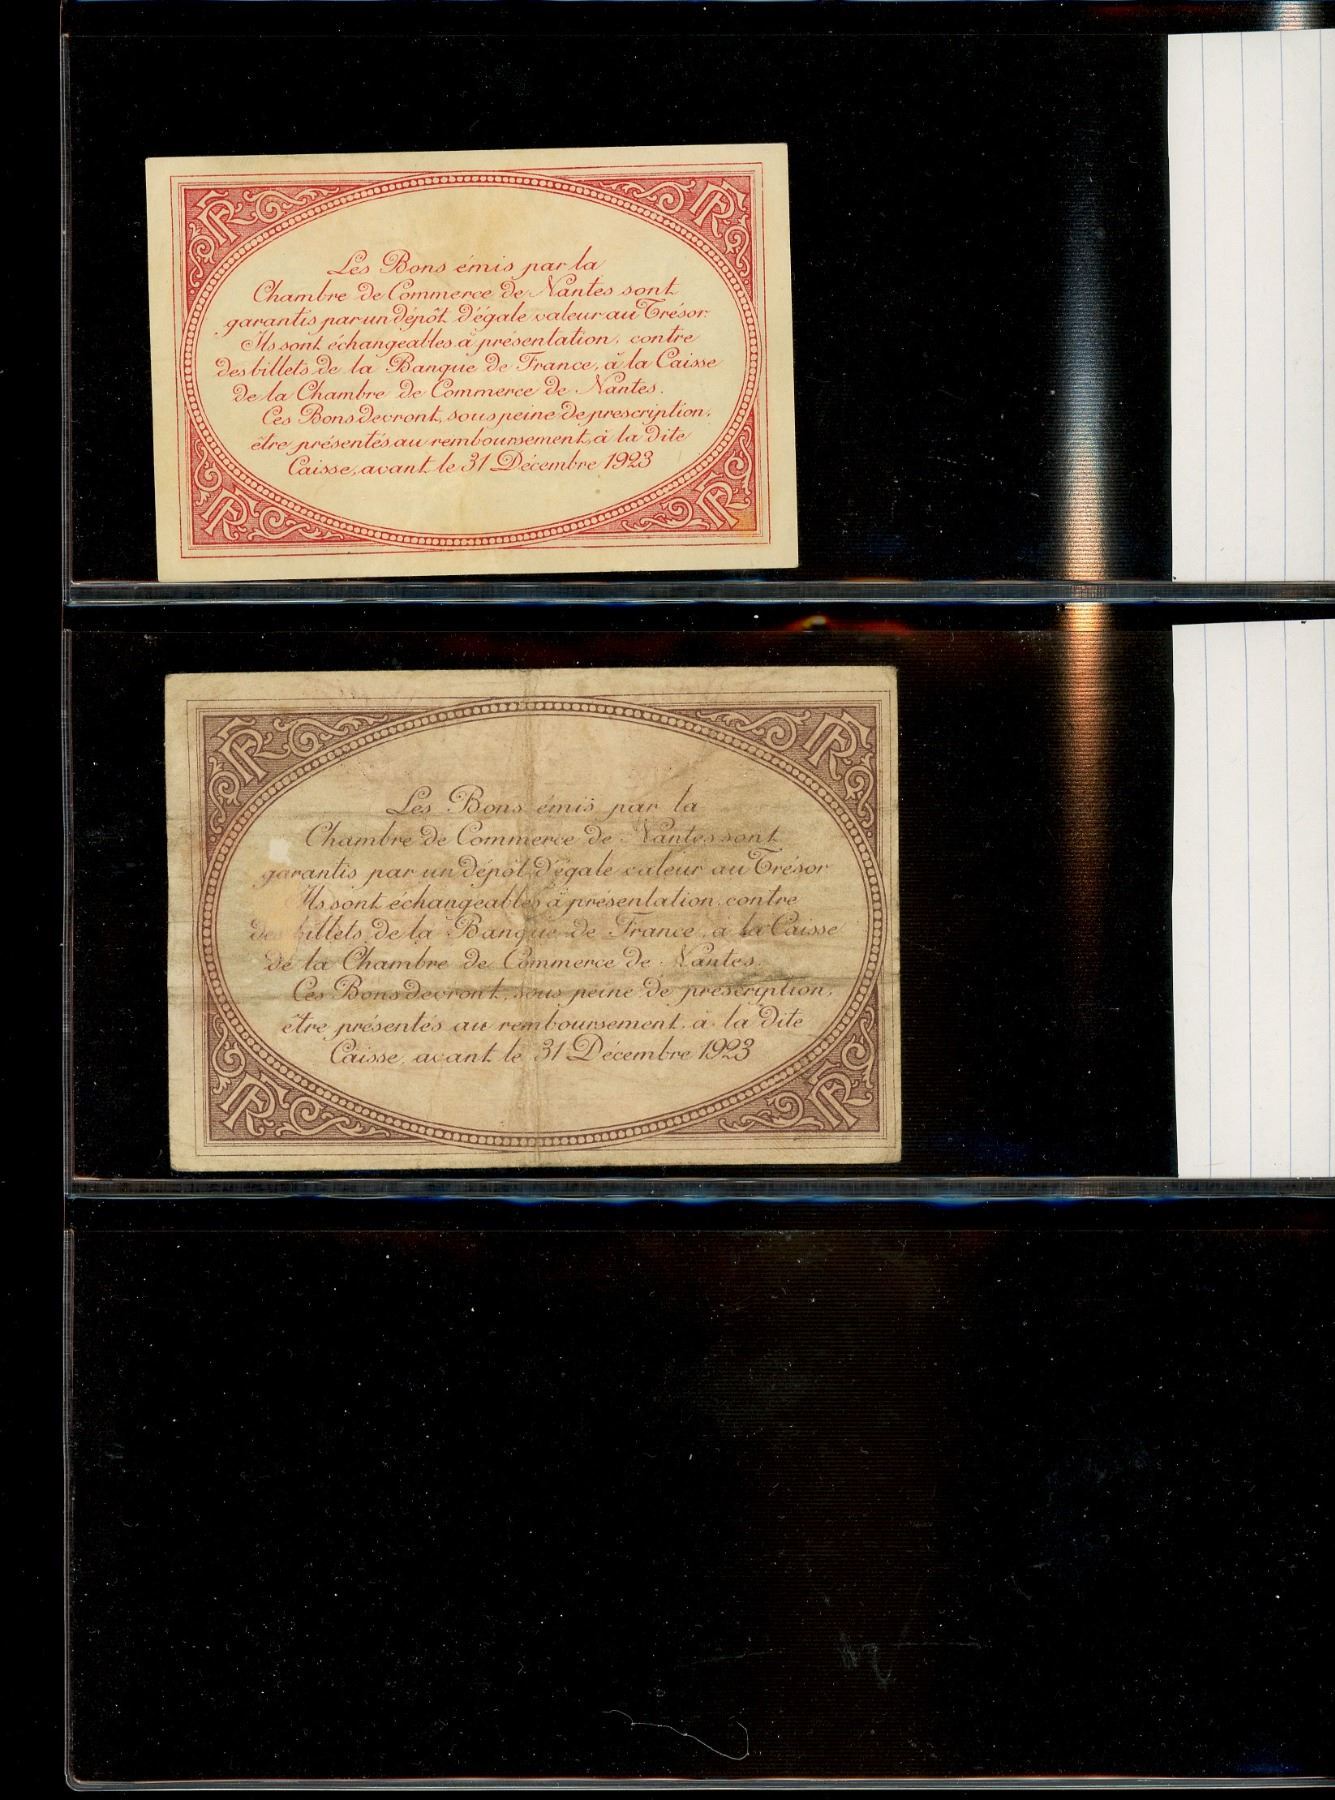 Les Bons émis par la
Chambre de Commerce de Nantes sont
garantis par un dépôt d'égale valeur au Trésor
Ils sont échangeables à présentation, contre
des billets de la Banque de France, à la Caisse
de la Chambre de Commerce de Nantes.
Ces Bons devront, sous peine de prescription,
être présentés au remboursement, à la dite
Caisse, avant le 31 Décembre 1923
Les Bons émis par la
Chambre de Commerce de Nantes sont
garantis par un dépôt d'égale valeur au Trésor
Ils sont échangeables à présentation, contre
des billets de la Banque de France, à la Caisse
de la Chambre de Commerce de Nantes.
Ces Bons devront, sous peine de prescription,
être présentés au remboursement, à la dite
Caisse, avant le 31 Décembre 1923